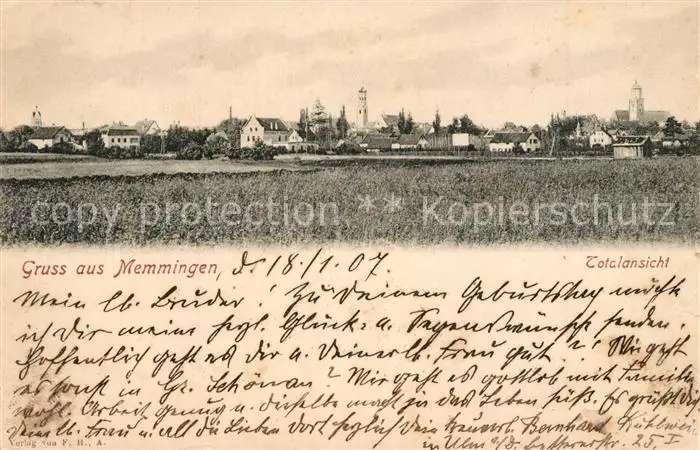 copy protection ** Kopierschutz
Gruss aus Memmingen, d. 18/1. 07
Totalansicht
Mein lb. Bruder! Zu Deinem Geburtstag muß
ich Dir meine hzl. Glück- u. Segenswünsche senden.
Hoffentlich geht es Dir u. Deiner lb. Frau gut? Wie geht
es sonst in Gr. Schönau? Mir geht es gottlob mit Familie
wohl. Arbeit genug u. dieselbe macht ja das Leben süß. Es grüßt Dich
Deine lb. Frau u. all die Lieben dort herzlich Dein Bernhard
in Ulm a/D. 25. I.
Verlag von F. H., A.